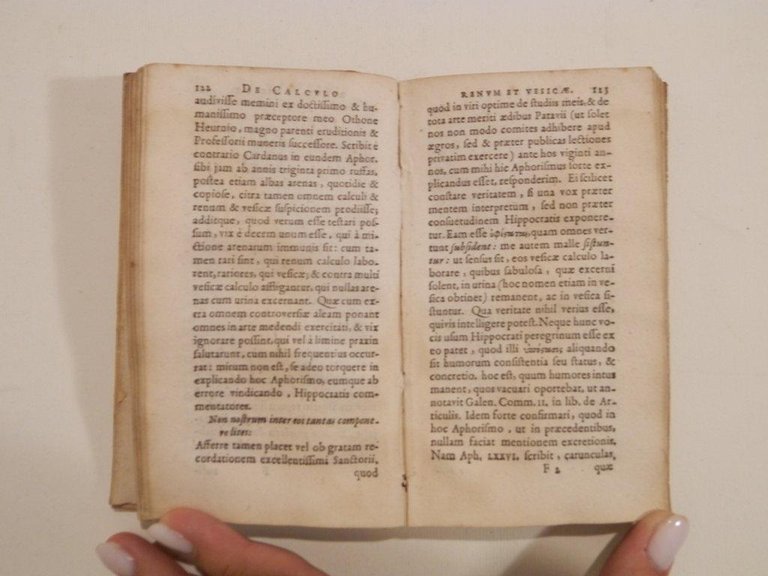 122 DE CALCVLO
audivisse memini ex doctissimo & hu-
manissimo præceptore meo Othone
Heurnio, magno parenti eruditionis &
Professorii muneris successore. Scribit è
contrario Cardanus in eundem Aphor.
sibi jam ab annis triginta primo ruffas,
postea etiam albas arenas, quotidie &
copiose, citra tamen omnem calculi &
renum & vesicæ suspicionem prodiisse;
additque, quod verum esse testari pos-
sum, vix è decem unum esse, qui à mi-
ctione arenarum immunis sit: cum ta-
men rari sint, qui renum calculo labo-
rent, rariores, qui vesicæ; & contra multi
vesicæ calculo affligantur, qui nullas are-
nas cum urina excernant. Quæ cum ex-
tra omnem controversiæ aleam ponant
omnes in arte medendi exercitati, & vix
ignorare possint, qui vel à limine praxin
salutarunt, cum nihil frequentius occur-
rat: mirum non est, se adeo torquere in
explicando hoc Aphorismo, eumque ab
errore vindicando, Hippocratis com-
mentatores.
Non nostrum inter eos tantas compone-
re lites:
Afferre tamen placet vel ob gratam re-
cordationem excellentissimi Sanctorii,
quod
RENVM ET VESICÆ. 123
quod in viri optime de studiis meis & de
tota arte meriti ædibus Patavii (ut solet
nos non modo comites adhibere apud
ægros, sed & præter publicas lectiones
privatim exercere) ante hos viginti an-
nos, cum mihi hic Aphorismus forte ex-
plicandus esset, responderim. Ei scilicet
constare veritatem, si una vox præter
mentem interpretum, sed non præter
consuetudinem Hippocratis exponere-
tur. Eam esse quam omnes ver-
tunt subsident: me autem malle sistun-
tur: ut sensus sit, eos vesicæ calculo la-
borare, quibus sabulosa, quæ excerni
solent, in urina (hoc nomen etiam in ve-
sica obtinet) remanent, ac in vesica si-
stuntur. Qua veritate nihil verius esse,
quivis intelligere potest. Neque hunc vo-
cis usum Hippocrati peregrinum esse ex
eo patet, quod illi aliquando
sit humorum consistentia seu status, &
concretio, hoc est, quum humores intus
manent, quos vacuari oportebat, ut an-
notavit Galen. Comm. II. in lib. de Ar-
ticulis. Idem forte confirmari, quod in
hoc Aphorismo, ut in præcedentibus,
nullam faciat mentionem excretionis.
Nam Aph. LXXVI. scribit, carunculas,
F 2 quæ